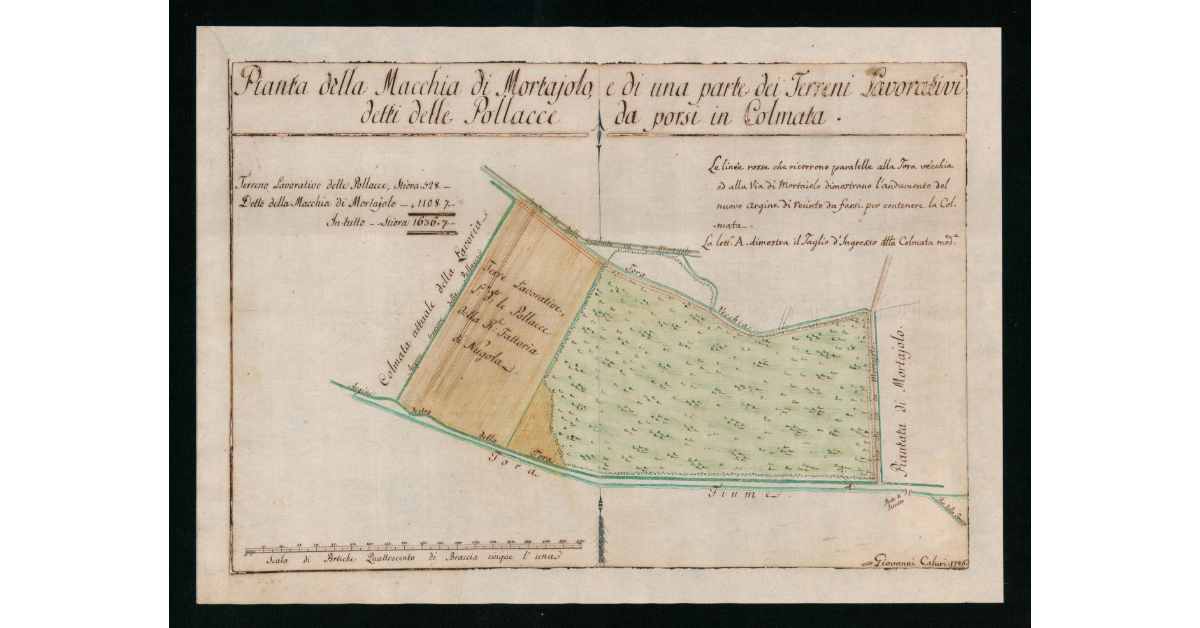 Pianta della Macchia di Mortajolo, e di una parte dei Terreni Lavorativi
detti delle Pollacce da porsi in Colmata.
Terreno Lavorativo delle Pollacce, Stiora 528 —
Detto della Macchia di Mortajolo — 1108.7 —
In tutto — Stiora 1636.7 —
Le linee rosse che ricorrono paralelle alla Tora vecchia
ed alla Via di Mortaiolo dimostrano l'andamento del
nuovo Argine di Recinto da farsi per contenere la Col-
mata.
La lett.ª A. dimostra il Taglio d'Ingresso alla Colmata med.ª
Colmata attuale della Lavoria
Argine delle Pollacce
Terre Lavorative,
le Pollacce
della R. Fattoria
di Nugola
Tora
Vecchia
Mortajolo
Piantata di Mortajolo.
Argine
destro
della
Tora
Tora
Fiume
A
Scala di Pertiche Quattrocento di Braccia cinque l'una
Giovanni Caluri 1786